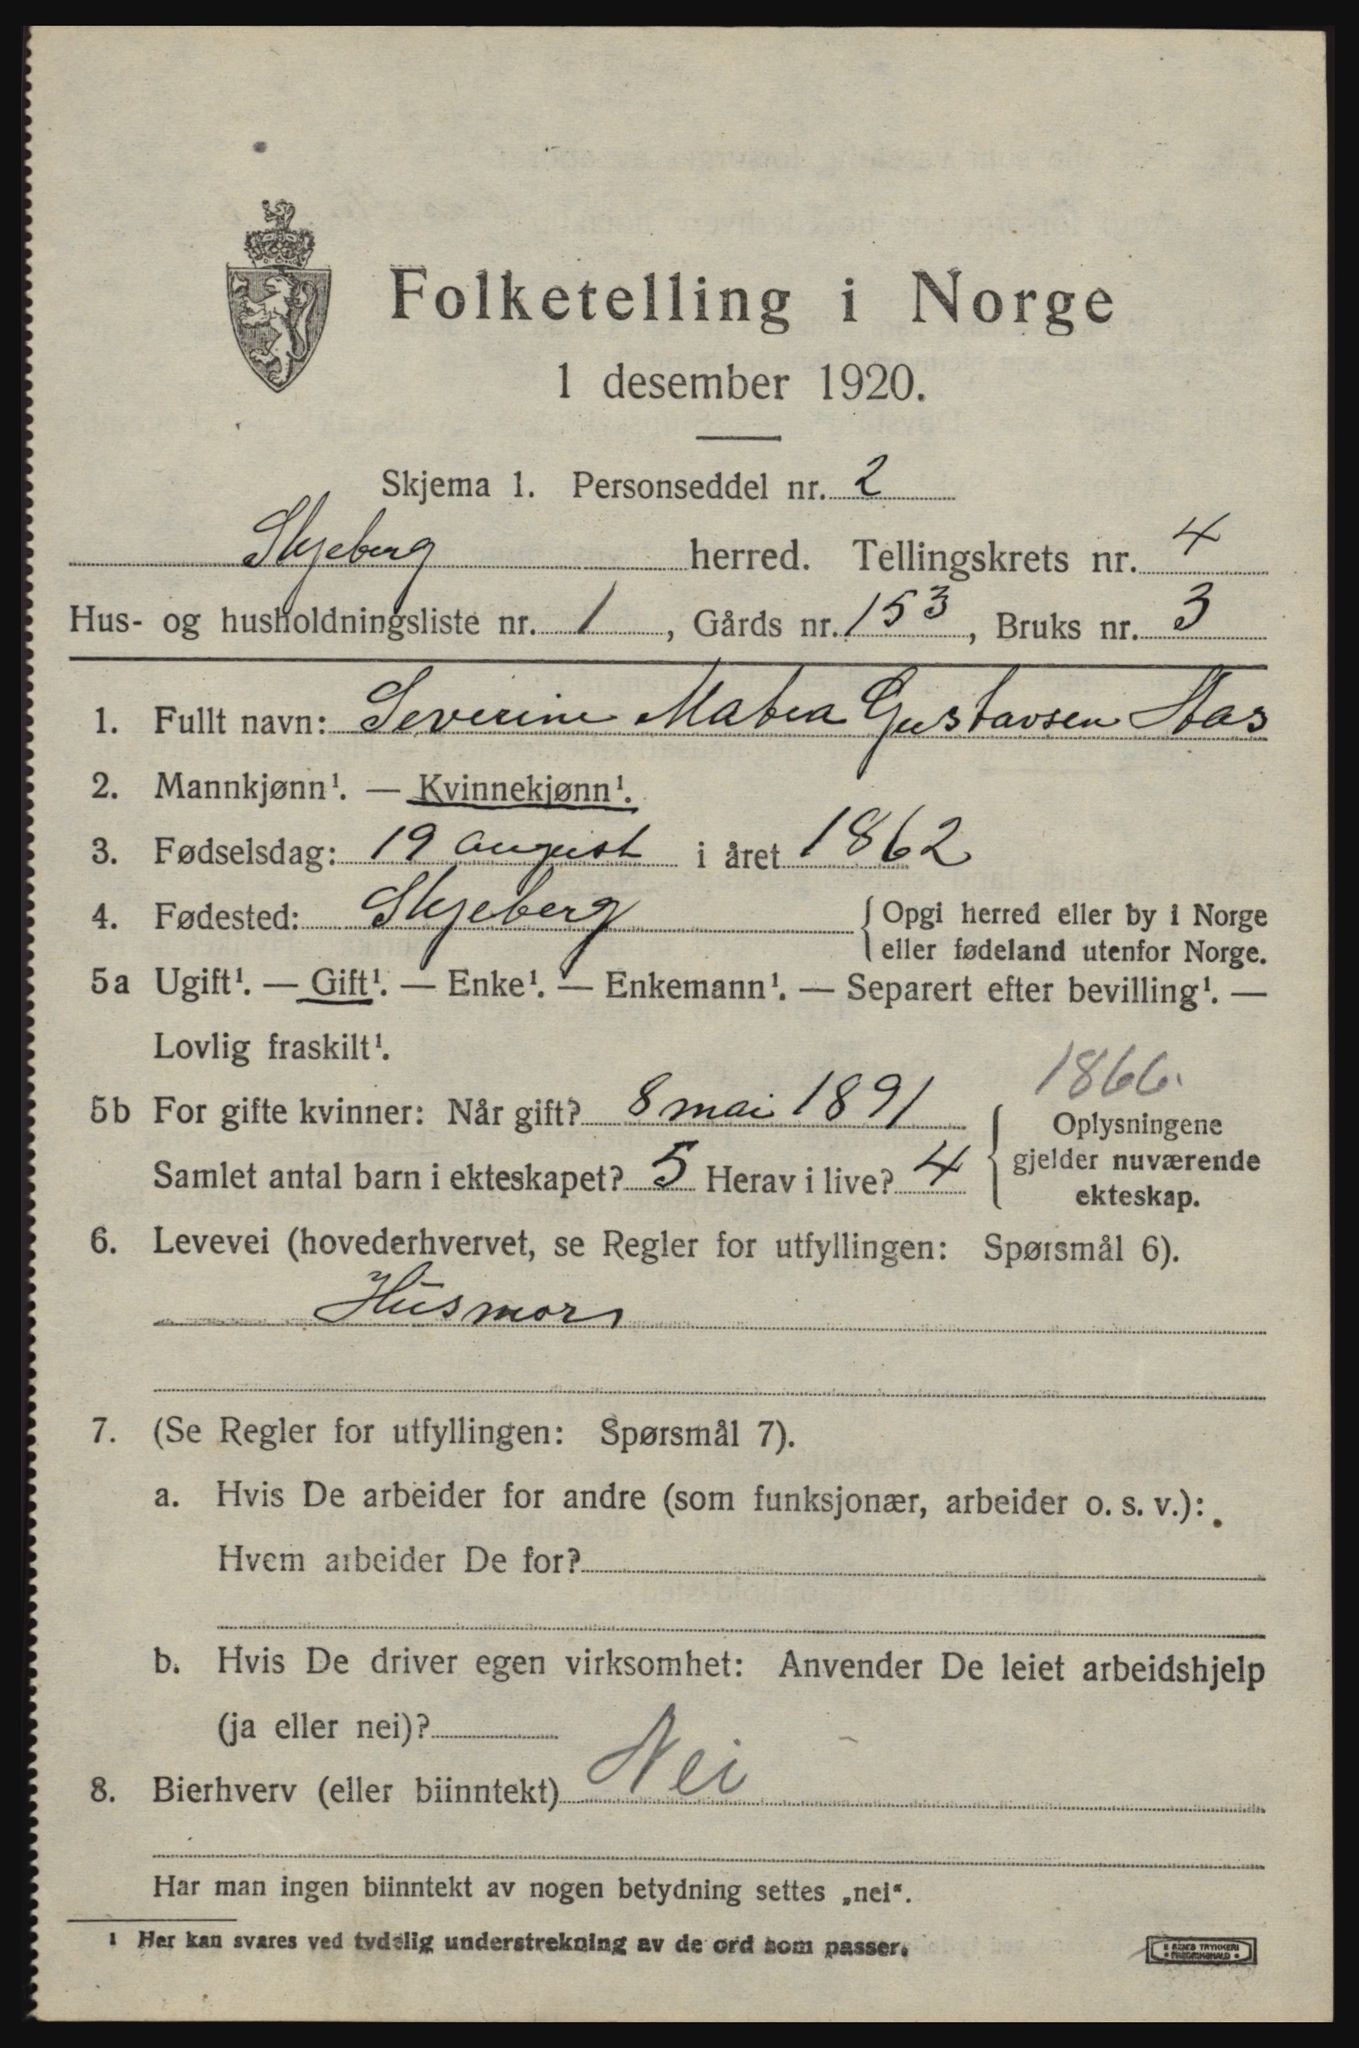 Folketelling i Norge
1 desember 1920.
Skjema 1. Personseddel nr. 2
Skjeberg herred. Tellingskrets nr. 4
Hus- og husholdningsliste nr. 1, Gårds nr. 153, Bruks nr. 3
1. Fullt navn: Severine Matea Gustavsen Aas
2. Mannkjønn¹. — Kvinnekjønn¹.
3. Fødselsdag: 19 august i året 1862
4. Fødested: Skjeberg { Opgi herred eller by i Norge
eller fødeland utenfor Norge.
5a Ugift¹. — Gift¹. — Enke¹. — Enkemann¹. — Separert efter bevilling¹. —
Lovlig fraskilt¹.
1866.
5b For gifte kvinner: Når gift? 8 mai 1891 { Oplysningene
gjelder nuværende
ekteskap.
Samlet antal barn i ekteskapet? 5 Herav i live? 4
6. Levevei (hovederhvervet, se Regler for utfyllingen: Spørsmål 6).
Husmor
7. (Se Regler for utfyllingen: Spørsmål 7).
a. Hvis De arbeider for andre (som funksjonær, arbeider o. s. v.):
Hvem arbeider De for?
b. Hvis De driver egen virksomhet: Anvender De leiet arbeidshjelp
(ja eller nei)?
8. Bierhverv (eller biinntekt) Nei
Har man ingen biinntekt av nogen betydning settes „nei“.
¹ Her kan svares ved tydelig understrekning av de ord som passer.
TRYKKERI
FREDRIKSHALD